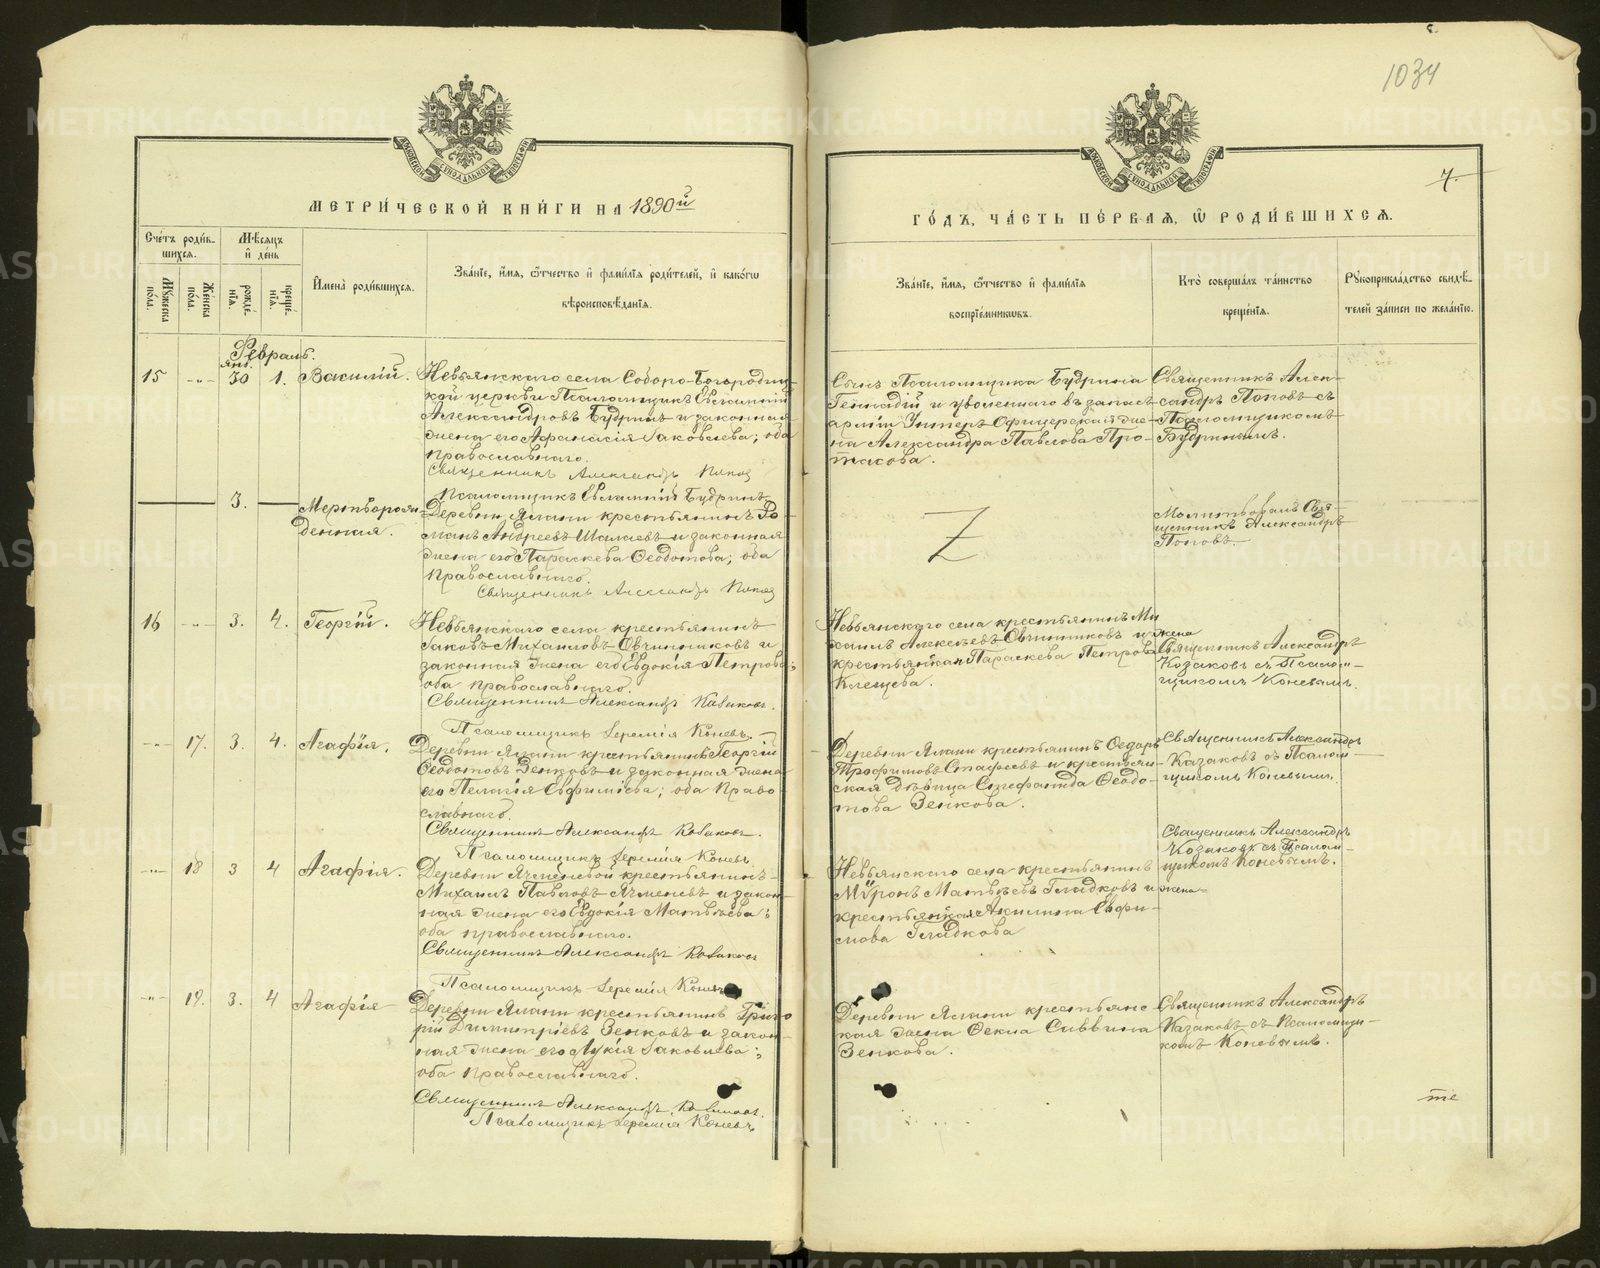 1034
7.
МЕТРИ́ЧЕСКОЙ КНИ́ГИ НА 1890й
ГО́ДЪ, ЧА́СТЬ ПЕ́РВАЯ, Ѡ РОДИ́ВШИХСЯ.
Сче́тъ роди́в-
шихся.
Мѣсяцъ
и де́нь
Му́жеска
по́ла.
Же́нска
по́ла.
рожде́-
нїя.
креще́-
нїя.
И́мена̀ роди́вшихся.
Зва́нїе, и́мя, ѻ́тчество и фами́лїя роди́телей, и како́гѡ
вѣроисповѣ́данїя.
Зва́нїе, и́мя, ѻ́тчество и фами́лїя
воспрїе́мникѡвъ.
Кто̀ соверша́лъ та́инство
креще́нїя.
Рꙋкоприкла́дство свидѣ́-
телей за́писи по жела́нїю.
Февраль.
15 -„- янв. 30 1. Василій.
Невьянскаго села Соборо-Богородиц-
кой церкви Псаломщикъ Евлампій
Александровъ Будринъ и законная
жена его Афанасія Іаковлева; оба
православнаго.
Священникъ Александръ Попов
Псаломщикъ Евлампій Будринъ
Сынъ Псаломщика Будрина
Геннадій и уволеннаго въ запасъ
арміи Унтеръ-Офицерская же-
на Александра Павлова Про-
тасова.
Священникъ Алек-
сандръ Поповъ съ
Псаломщикомъ
Будринымъ.
3. Мертворож-
денная.
Деревни Ялани крестьянинъ Ро-
манъ Андреевъ Шалаевъ и законная
жена его Параскева Ѳеодотова; оба
православнаго.
Священникъ Александръ Попов
Молитвовалъ Свя-
щенникъ Александръ
Поповъ.
16 -„- 3. 4. Георгій.
Невьянскаго села крестьянинъ
Іаковъ Михаиловъ Овчинниковъ и
законная жена его Евдокія Петрова;
оба православнаго.
Священникъ Александръ Казаковъ.
Псаломщикъ Іеремія Коневъ.
Невьянскаго села крестьянинъ Ми-
хаилъ Алексѣевъ Овчинниковъ и жена
крестьянская Параскева Петрова
Клещева.
Священникъ Александръ
Козаковъ съ Псалом-
щикомъ Коневымъ.
-„- 17. 3. 4. Агафія.
Деревни Ялани крестьянинъ Георгій
Ѳеодотовъ Зенковъ и законная жена
его Пелагія Евфиміева; оба право-
славнаго.
Священникъ Александръ Козаковъ.
Псаломщикъ Іеремія Коневъ.
Деревни Ялани крестьянинъ Ѳедоръ
Трофимовъ Стафеевъ и крестьян-
ская дѣвица Стефанида Ѳеодо-
това Зенкова.
Священникъ Александръ
Казаковъ съ Псалом-
щикомъ Коневымъ.
-„- 18 3 4 Агафія.
Деревни Ячменевой крестьянинъ
Михаилъ Павловъ Ячменевъ и закон-
ная жена его Евдокія Матвѣева;
оба православнаго.
Священникъ Александръ Козаковъ
Псаломщикъ Іеремія Коневъ
Невьянскаго села крестьянинъ
Мѵронъ Матвѣевъ Гладковъ и жена
крестьянская Акилина Евфи-
мова Гладкова
Священникъ Александръ
Козаковъ съ Псалом-
щикомъ Коневымъ.
-„- 19. 3. 4 Агафія
Деревни Ялани крестьянинъ Григо-
рій Димитріевъ Зенковъ и закон-
ная жена его Лукія Іаковлева;
оба православнаго.
Священникъ Александръ Козаковъ.
Псаломщикъ Іеремія Коневъ
Деревни Ялани крестьянс-
кая жена Ѳекла Саввина
Зенкова.
Священникъ Александръ
Казаковъ съ Псаломщи-
комъ Коневымъ.
те
METRIKI.GASO-URAL.RU